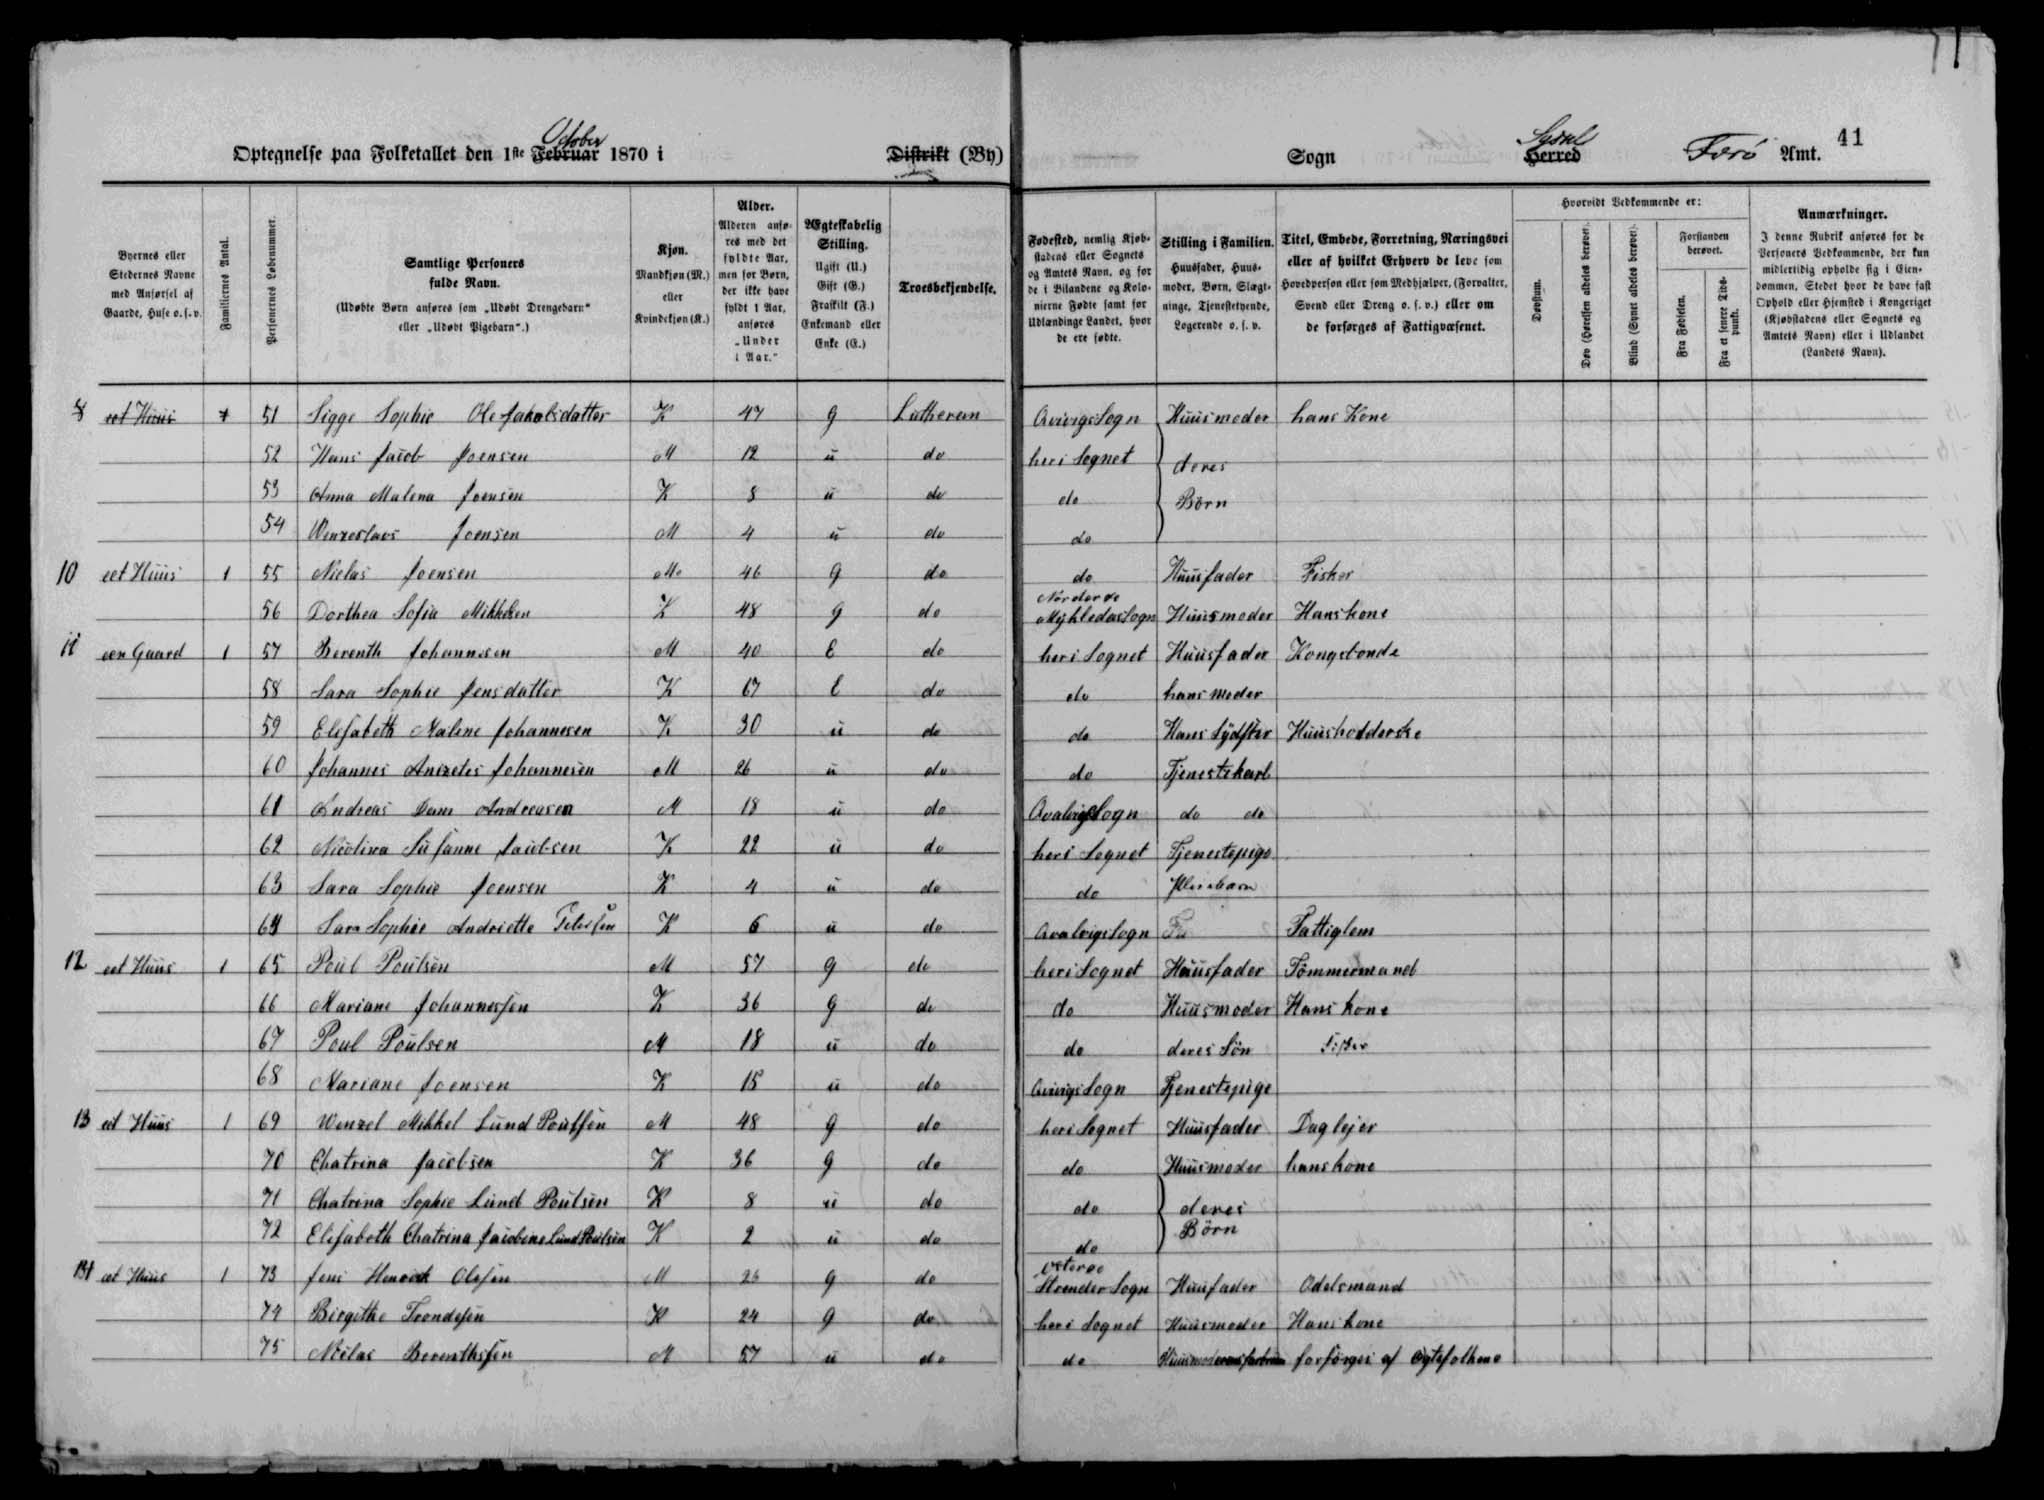 41
October Sysel
Optegnelse paa Folketallet den 1ste Februar 1870 i Distrikt (By) Sogn Herred Færö Amt.
Byernes eller Stedernes Navne med Anførsel af Gaarde, Huse o.s.v.
Familiernes Antal.
Personernes Løbenummer.
Samtlige Personers fulde Navn. (Udøbte Børn anføres som „Udøbt Drengebarn" eller „Udøbt Pigebarn".)
Kjøn. Mandkjøn (M.) eller Kvindekjøn (K.)
Alder. Alderen anføres med det fyldte Aar, men for Børn, der ikke have fyldt 1 Aar, anføres „Under 1 Aar."
Ægteskabelig Stilling. Ugift (U.) Gift (G.) Fraskilt (F.) Enkemand eller Enke (E.)
Troesbekjendelse.
Fødested, nemlig Kjøbstadens eller Sognets og Amtets Navn, og for de i Bilandene og Kolonierne Fødte samt for Udlændinge Landet, hvor de ere fødte.
Stilling i Familien. Huusfader, Huusmoder, Børn, Slægtninge, Tjenestetyende, Logerende o.s.v.
Titel, Embede, Forretning, Næringsvei eller af hvilket Erhverv de leve som Hovedperson eller som Medhjælper, (Forvalter, Svend eller Dreng o.s.v.) eller om de forsørges af Fattigvæsenet.
Hvorvidt Vedkommende er:
Døvstum.
Døv (Hørelsen aldeles berøvet).
Blind (Synet aldeles berøvet).
Forstanden berøvet.
Fra Fødselen.
Fra et senere Tidspunkt.
Anmærkninger. I denne Rubrik anføres for de Personers Vedkommende, der kun midlertidig opholde sig i Eiendommen, Stedet hvor de have fast Ophold eller Hjemsted i Kongeriget (Kjøbstadens eller Sognets og Amtets Navn) eller i Udlandet (Landets Navn).
eet Huus 51 Sigge Sophie Ole Jakobsdatter K 47 G Lutheran Qvivigs Sogn Huusmoder hans Kone
52 Hans Jacob Joensen M 12 u do heri Sognet deres
53 Anna Malena Joensen K 8 u do do Børn
54 Wenzeslaus Joensen M 4 u do do
10 eet Huus 1 55 Nielas Joensen M 46 G do do Huusfader Fisker
Norderøe
56 Dorthea Sofia Mikkelsen K 48 G do Huusmoder Hans kone
11 een Gaard 1 57 Berenth Johannesen M 40 E do heri Sognet Huusfader Kongsbonde
58 Sara Sophie Jensdatter K 67 E do do hans Moder
59 Elisabeth Malene Johannesen K 30 u do do Hans Sydster Huusholderske
60 Johannes Anizetes Johannesen M 26 u do do Tjenestekarl
61 Andreas Dam Andreasen M 18 u do Qvalvigs Sogn do do
62 Nicolina Susanne Jacobsen K 22 u do heri Sognet Tjenestepige
63 Sara Sophie Joensen K 4 u do do Pleiebarn
64 Sara Sophie Andriette Petersen K 6 u do Qvalvigs Sogn Fattiglem
12 eet Huus 1 65 Poul Poulsen M 57 G do heri Sognet Huusfader Tömmermand
66 Mariane Johannessen K 36 G do do Huusmoder Hans kone
67 Poul Poulsen M 18 u do do deres Sön Fisker
68 Mariane Joensen K 15 u do Qvivigs Sogn Tjenestepige
13 eet Huus 1 69 Wenzel Mikkel Lund Poulsen M 48 G do heri Sognet Huusfader Daglejer
70 Chatrina Jacobsen K 36 G do do Huusmoder hans kone
71 Chatrina Sophie Lund Poulsen K 8 u do do deres
72 Elisabeth Chatrina Jacobine Lund Poulsen K 2 u do do Börn
Österøe
eet Huus 1 73 Jens Henrick Olesen M 26 G do Strender Sogn Huusfader Odelsmand
74 Birgithe Trondesen K 24 G do heri Sognet Huusmoder Hans kone
75 Nielas Berenthsen M 57 u do do Huusmoderens farbroer forsörges af Egtefolkene